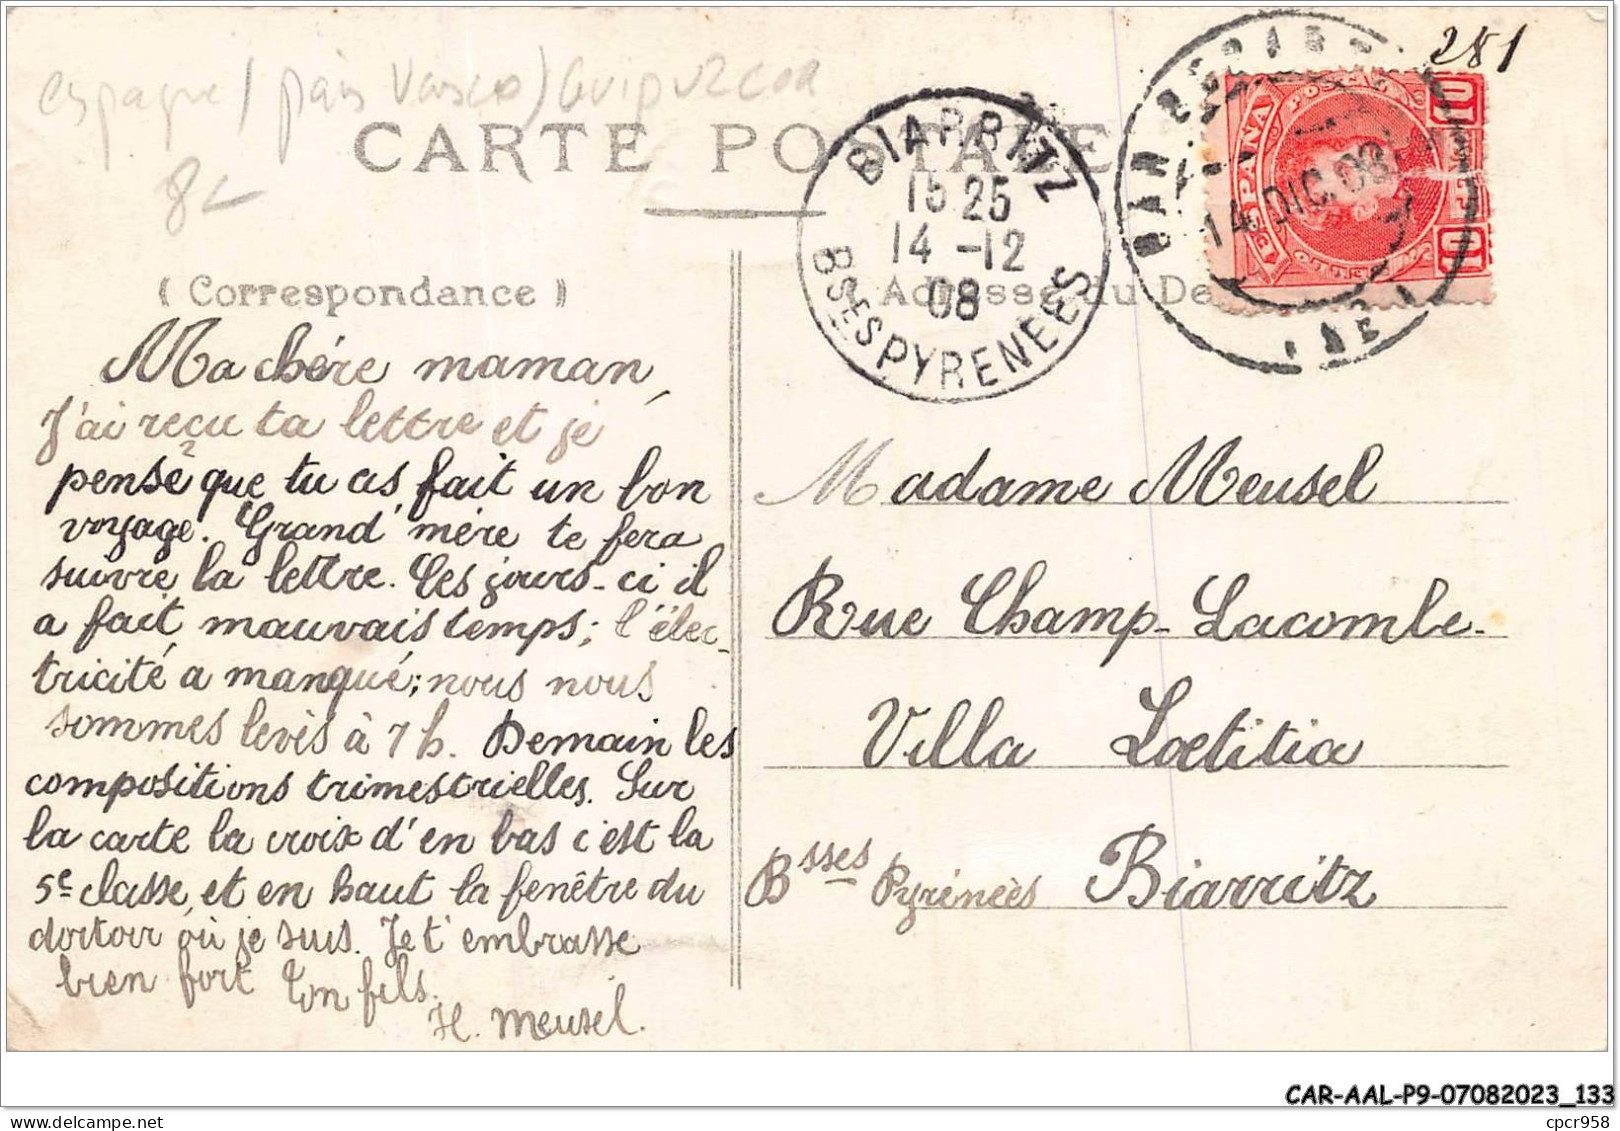 281
espagne / pais Vasco) Guipuzcoa
CARTE POSTALE
8€
BIARRITZ
15 25
14 -12
08
BSES PYRENEES
ESPAÑA
14 DIC. 08
10
10
( Correspondance )
Adresse du De
Ma chére maman,
J'ai reçu ta lettre et je
pense que tu as fait un bon
voyage. Grand' mère te fera
suivre la lettre. Ces jours-ci il
a fait mauvais temps; l'élec-
tricité a manqué; nous nous
sommes levés à 7 h. Demain les
compositions trimestrielles. Sur
la carte la croix d'en bas c'est la
5e classe, et en haut la fenêtre du
dortoir où je suis. Je t'embrasse
bien fort Ton fils.
H. Meusel.
Madame Meusel
Rue Champ-Lacombe-
Villa Lœtitia
Bsses Pyrénées Biarritz
CAR-AAL-P9-07082023_133
cpcr958